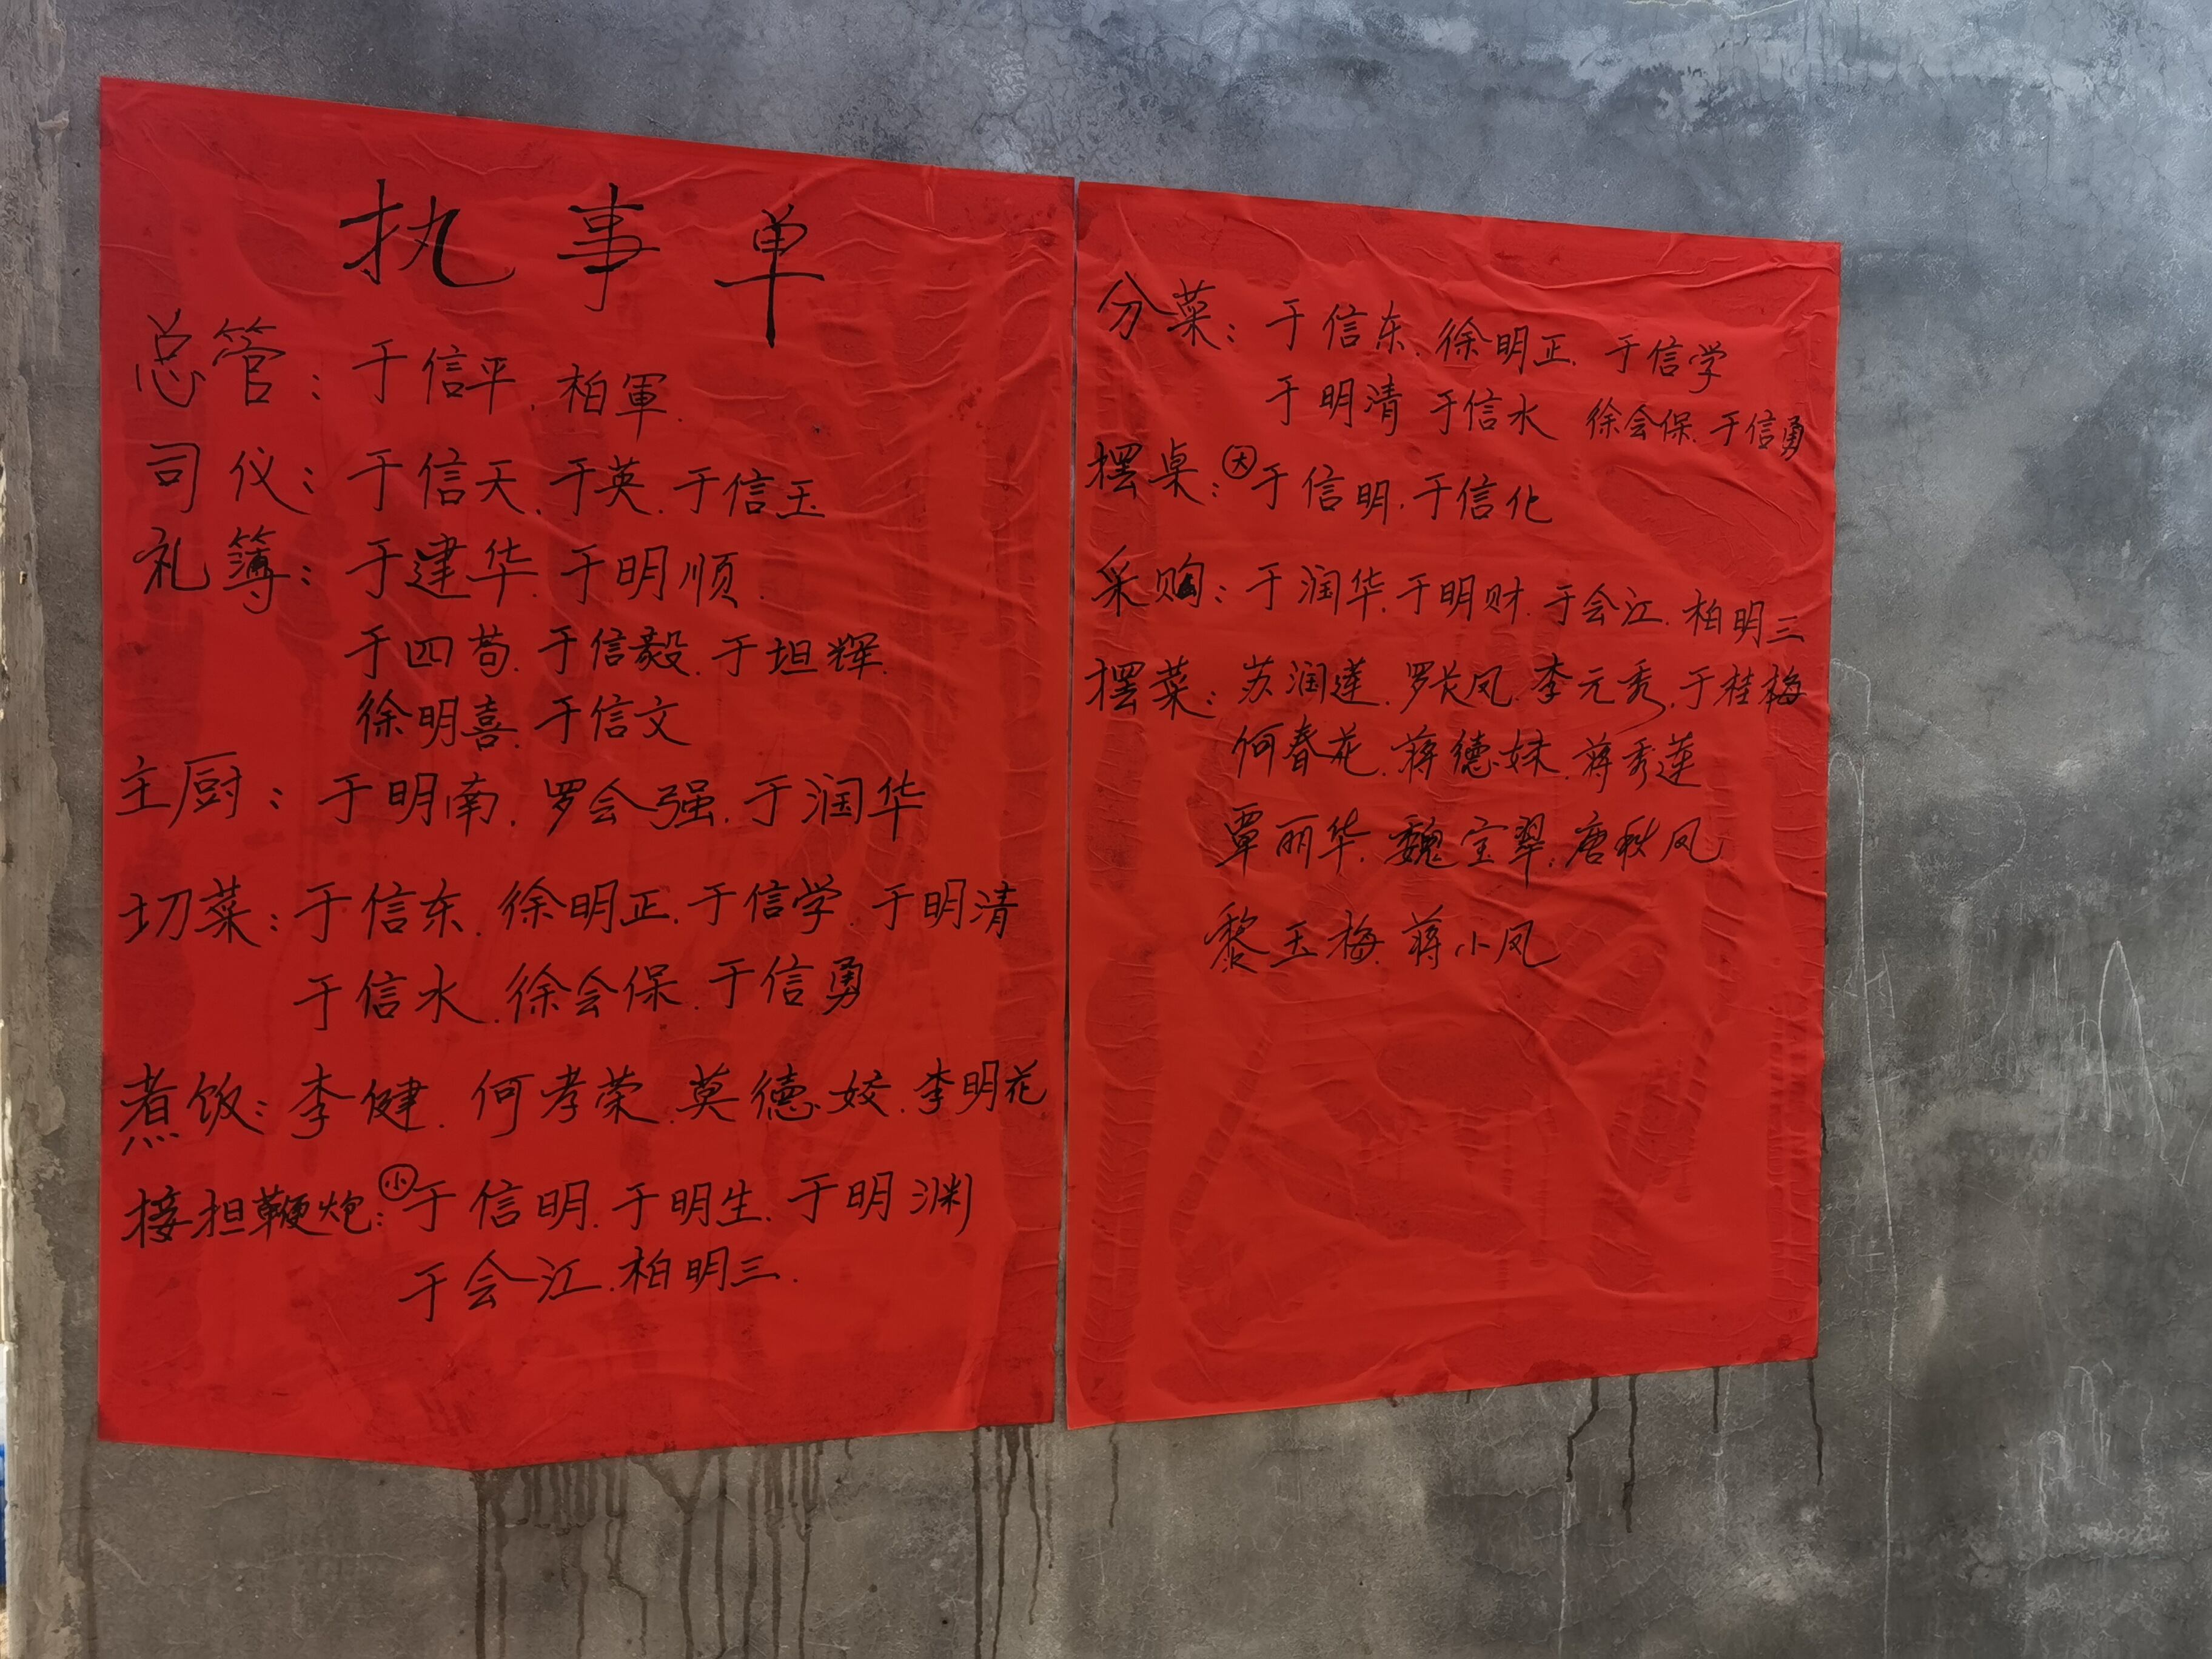 执事单
总管：于信平．柏軍．
司仪：于信天．于英．于信玉
礼簿：于建华．于明顺．
于四苟．于信毅．于坦辉．
徐明喜．于信文
主厨：于明南．罗会强．于润华
切菜：于信东．徐明正．于信学．于明清
于信水．徐会保．于信勇
煮饭：李健．何孝荣．莫德姣．李明花
接担鞭炮：㊀小于信明．于明生．于明渊
于会江．柏明三．
分菜：于信东．徐明正．于信学
于明清 于信水 徐会保．于信勇
摆桌：大于信明．于信化
采购：于润华．于明财．于会江．柏明三
摆菜：苏润莲．罗长凤．李元秀．于桂梅
何春花．蒋德妹．蒋秀莲
覃丽华．魏宝翠．唐秋凤
黎玉梅．蒋小凤